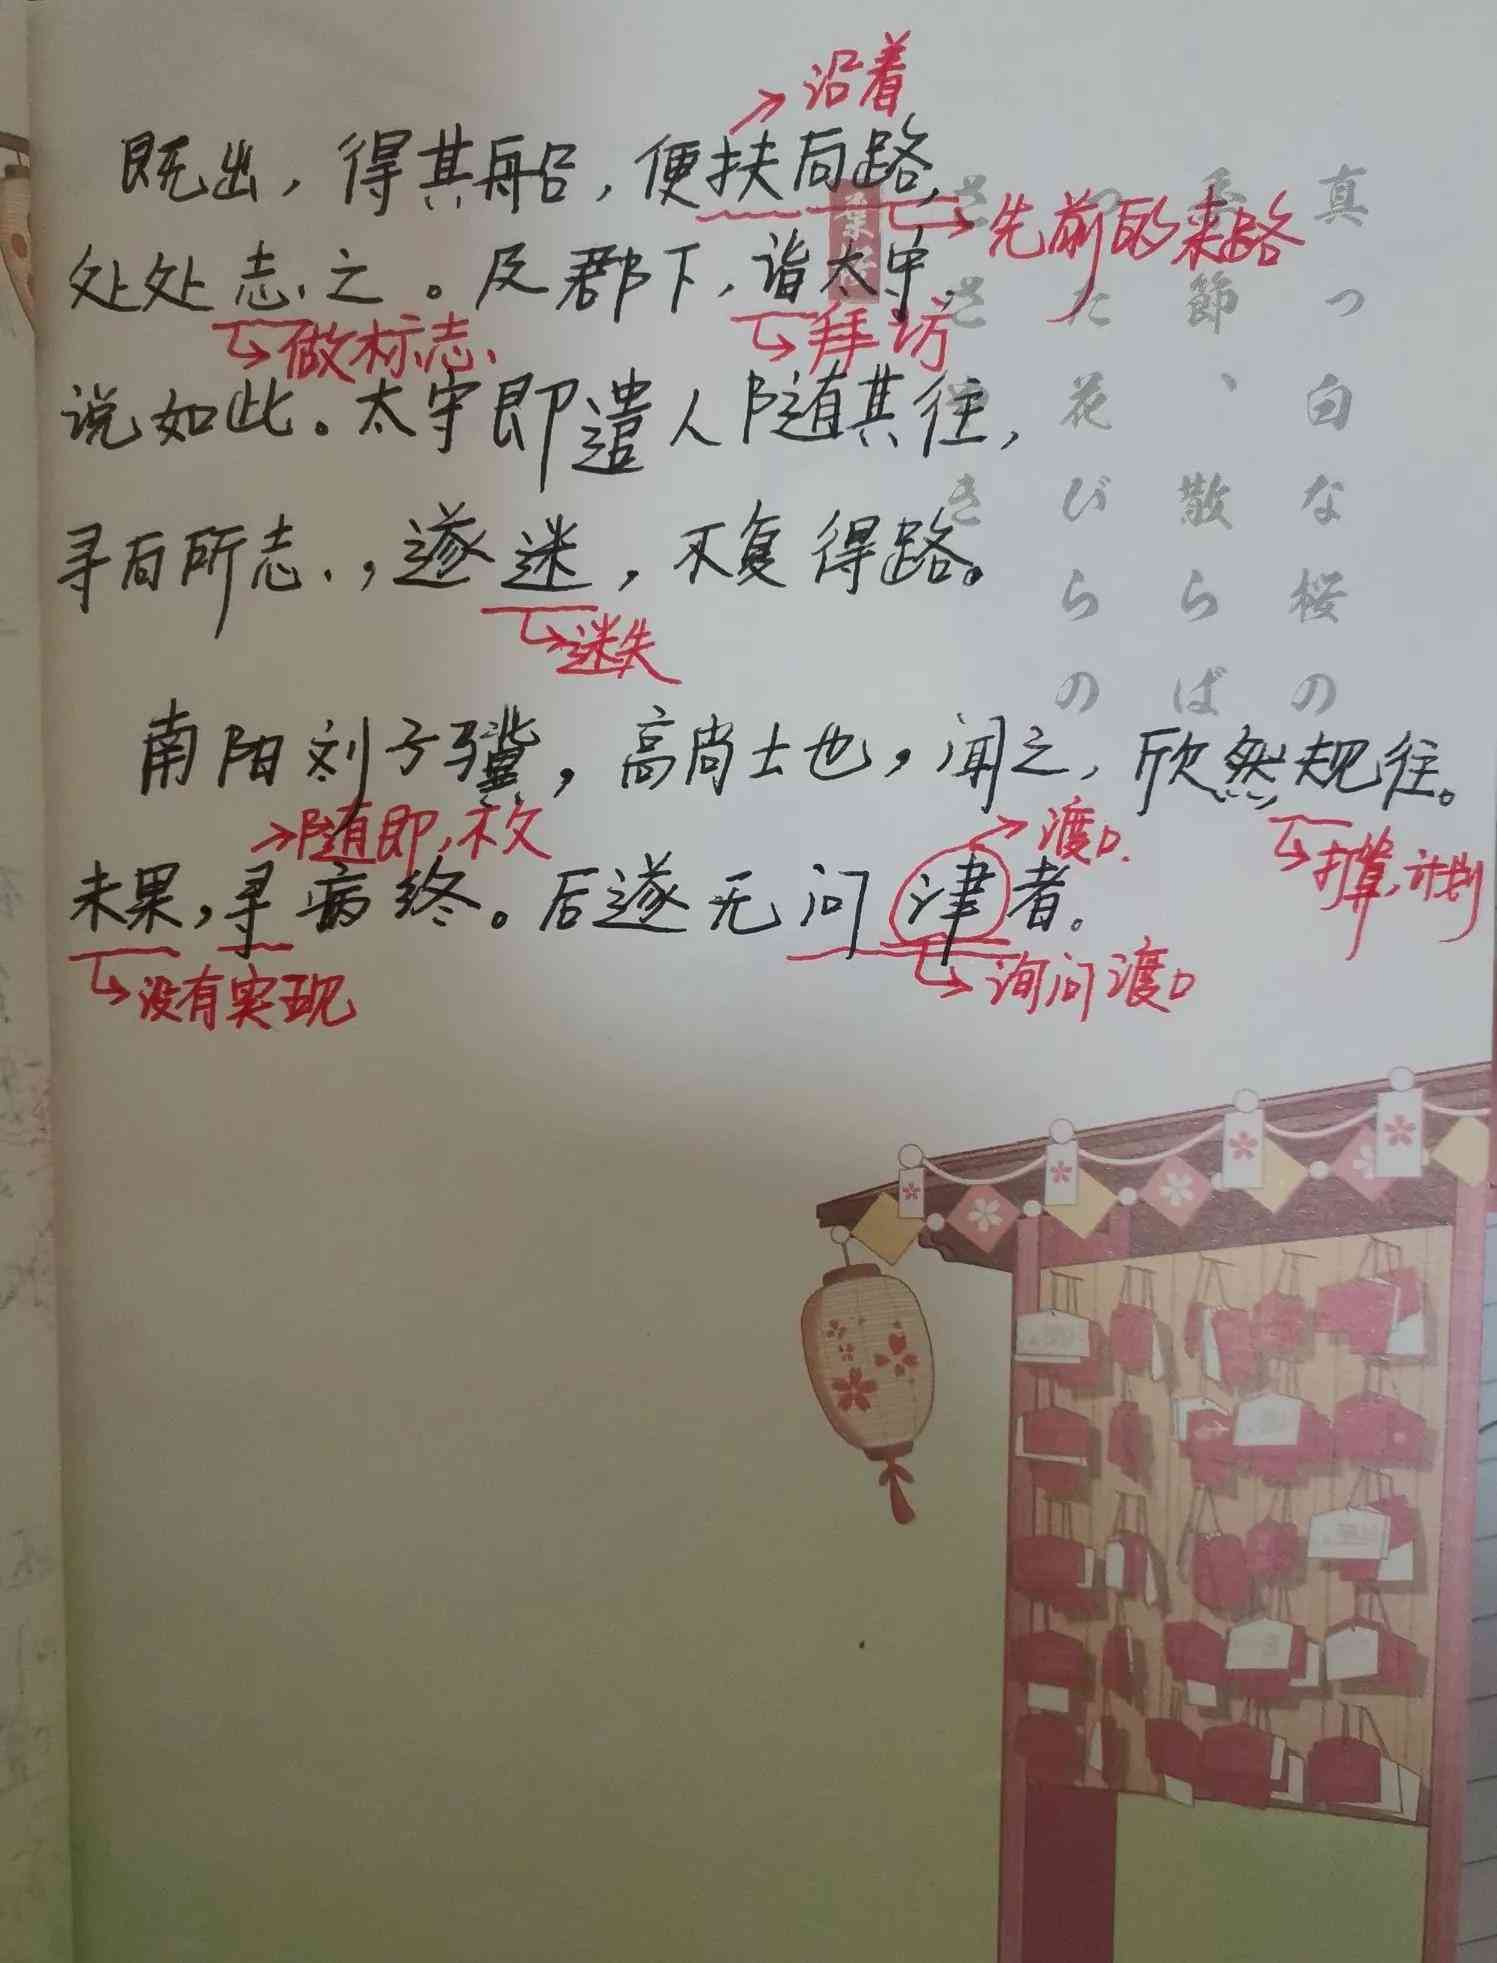 沿着
既出，得其船，便扶向路，
先前的来路
处处志之。及郡下，诣太守，
做标志
拜访
说如此。太守即遣人随其往，
寻向所志，遂迷，不复得路。
迷失
南阳刘子骥，高尚士也，闻之，欣然规往。
随即，不久
渡口
打算，计划
未果，寻病终。后遂无问津者。
没有实现
询问渡口
真っ白な桜の
季節、散らば
った花びらの